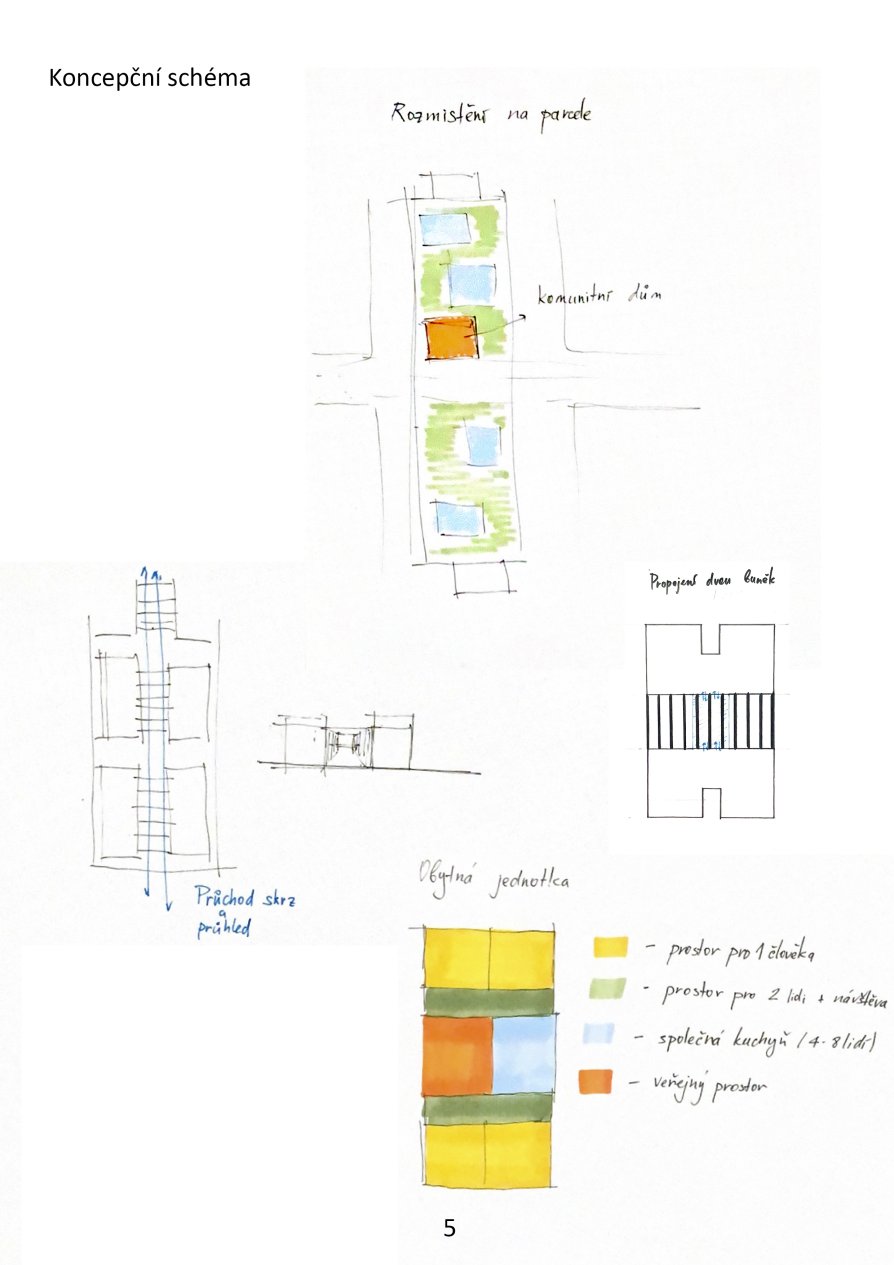 Koncepční schéma
Rozmistění na parcele
komunitní dům
Propojení dvou buněk
Průchod skrz
a
průhled
Obytná jednotka
- prostor pro 1 člověka
- prostor pro 2 lidi + návštěva
- společná kuchyň (4-8 lidí)
- veřejný prostor
5